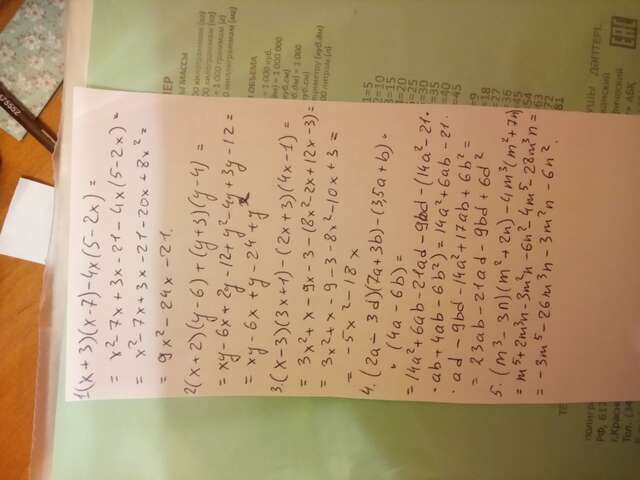 1(x+3)(x-7)-4x(5-2x)=
= x²-7x+3x-21-4x(5-2x)=
= x²-7x+3x-21-20x+8x²=
= 9x²-24x-21.
2(x+2)(y-6)+(y+3)(y-4)=
= xy-6x+2y-12+y²-4y+3y-12=
= xy-6x+y-24+y²
3.(x-3)(3x+1)-(2x+3)(4x-1)=
= 3x²+x-9x-3-(8x²-2x+12x-3)=
= 3x²+x-9-3-8x²-10x+3=
= -5x²-18x
4.(2a-3d)(7a+3b)-(3,5a+b)·
·(4a-6b)=
=14a²+6ab-21ad-9bd-(14a²-21·
·ab+4ab-6b²)=14a²+6ab-21·
·ad-9bd-14a²+17ab+6b²=
= 23ab-21ad-9bd+6d²
5.(m³-3n)(m²+2n)-4m³(m²+7n)
=m⁵+2m³n-3m²n-6n²-4m⁵-28m³n=
=-3m⁵-26m³n-3m²n-6n².
МАССЫ
килограммам (кг)
килограммам (кг)
= 1 000 граммам (г)
миллиграммам (мг)
ОБЪЕМА
= 1 000 куб.
= 1 000 000
(куб.см)
= 1 000
(куб.см)
(куб.дм)
литрам (л)
1=5
2=10
3=15
4=20
5=25
=30
=35
=40
=45
=9
=18
=27
=36
=45
=54
=63
=72
=81
полигр
РФ, 617
г.Красно
Тел. (34
ДӘПТЕРІ.
АБК
ЕАС